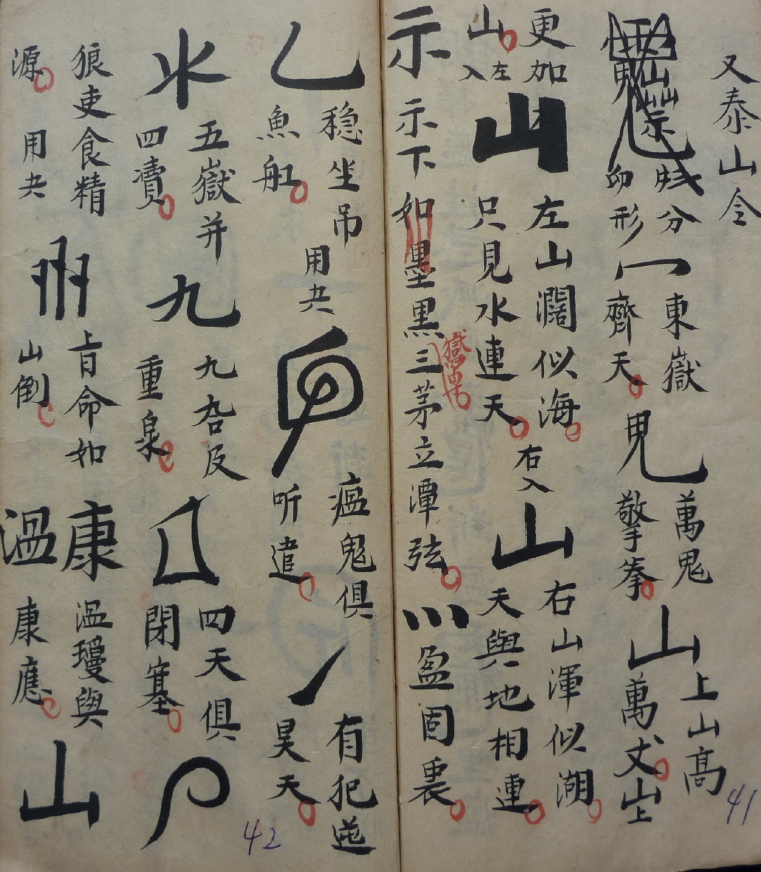 又泰山令
分
形
一
東嶽
齊天
萬鬼
擎拳
山
上山高
萬丈
山上
更加
山
左入
山
左山濶似海
只見水連天
右入
山
右山渾似潮
天與地相連
示
示下如墨黑
三茅立潭弦
盈固裏
41
乙
穏坐吊
魚舡
用共
瘟鬼俱
听遣
丿
有犯逆
昊天
水
五嶽并
四瀆
九
九及
重泉
四天俱
閉塞
42
狼吏食精
源
用共
命如
山倒
康
温
温瓊與
康應
山